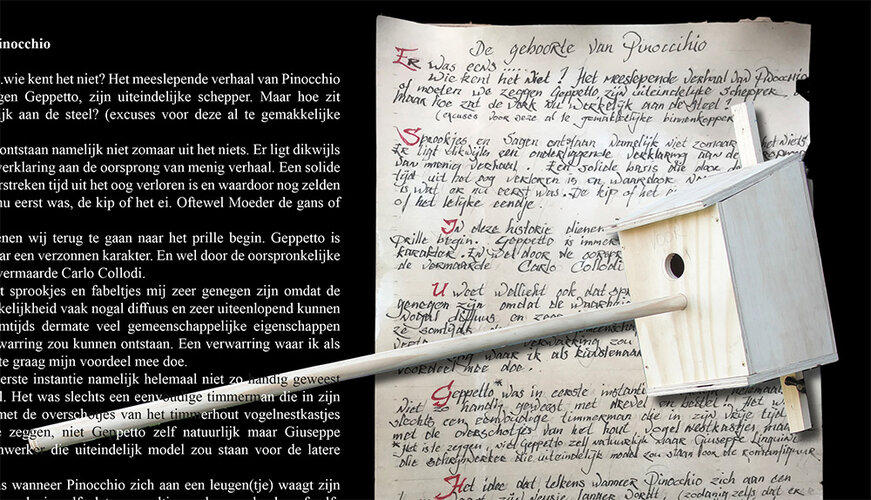 inocchio
.wie kent het niet? Het meeslepende verhaal van Pinocchio
gen Geppetto, zijn uiteindelijke schepper. Maar hoe zit
ijk aan de steel? (excuses voor deze al te gemakkelijke
ontstaan namelijk niet zomaar uit het niets. Er ligt dikwijls
verklaring aan de oorsprong van menig verhaal. Een solide
rstreken tijd uit het oog verloren is en waardoor nog zelden
nu eerst was, de kip of het ei. Oftewel Moeder de gans of
enen wij terug te gaan naar het prille begin. Geppetto is
ar een verzonnen karakter. En wel door de oorspronkelijke
vermaarde Carlo Collodi.
t sprookjes en fabeltjes mij zeer genegen zijn omdat de
kelijkheid vaak nogal diffuus en zeer uiteenlopend kunnen
mtijds dermate veel gemeenschappelijke eigenschappen
warring zou kunnen ontstaan. Een verwarring waar ik als
te graag mijn voordeel mee doe.
eerste instantie namelijk helemaal niet zo handig geweest
l. Het was slechts een eenvoudige timmerman die in zijn
met de overschotjes van het timmerhout vogelnestkastjes
e zeggen, niet Geppetto zelf natuurlijk maar Giuseppe
nwerker die uiteindelijk model zou staan voor de latere
ns wanneer Pinocchio zich aan een leugen(tje) waagt zijn
De geboorte van Pinoccihio
Er was eens
Wie kent het niet? Het meeslepende verhaal van Pinocchio
of moeten we zeggen Geppetto, zijn uiteindelijke schepper.
Maar hoe zat de vork nu werkelijk aan de steel?
(excuses voor deze al te gemakkelijke binnenkopper
Sprookjes en Sagen ontstaan namelijk niet zomaar het niets
Er ligt dikwijls een onderliggende verklaring aan de oorsprong
van menig verhaal. Een solide basis die door de
tijd uit het oog verloren is en waardoor
is wat er nu eerst was. De kip of het
of het lelijke eendje.
In deze historie dienen
prille begin. Geppetto is immers
karakter. En wel door de oorspr
de vermaarde Carlo Collodi
U weet wellicht ook dat spr
genegen zijn omdat de waarhei
nogal diffuus en zeer
ze somtijds
waar ik als kunstenaar
voordeel mee doe.
Geppetto* was in eerste instanti helemaal
Niet zo handig geweest met drevel en beitel. Het w
slechts een eenvoudige timmerman die in zijn vrije tijd
met de overschotjes van het hout vogel nestkastjes maa
*Het is te zeggen, niet Geppetto zelf natuurlijk maar Giuseppe Linguini
die schrijnwerker die uiteindelijk model zou staan voor de romanfiguur
Het idee dat telkens wanneer Pinocchio zich aan een